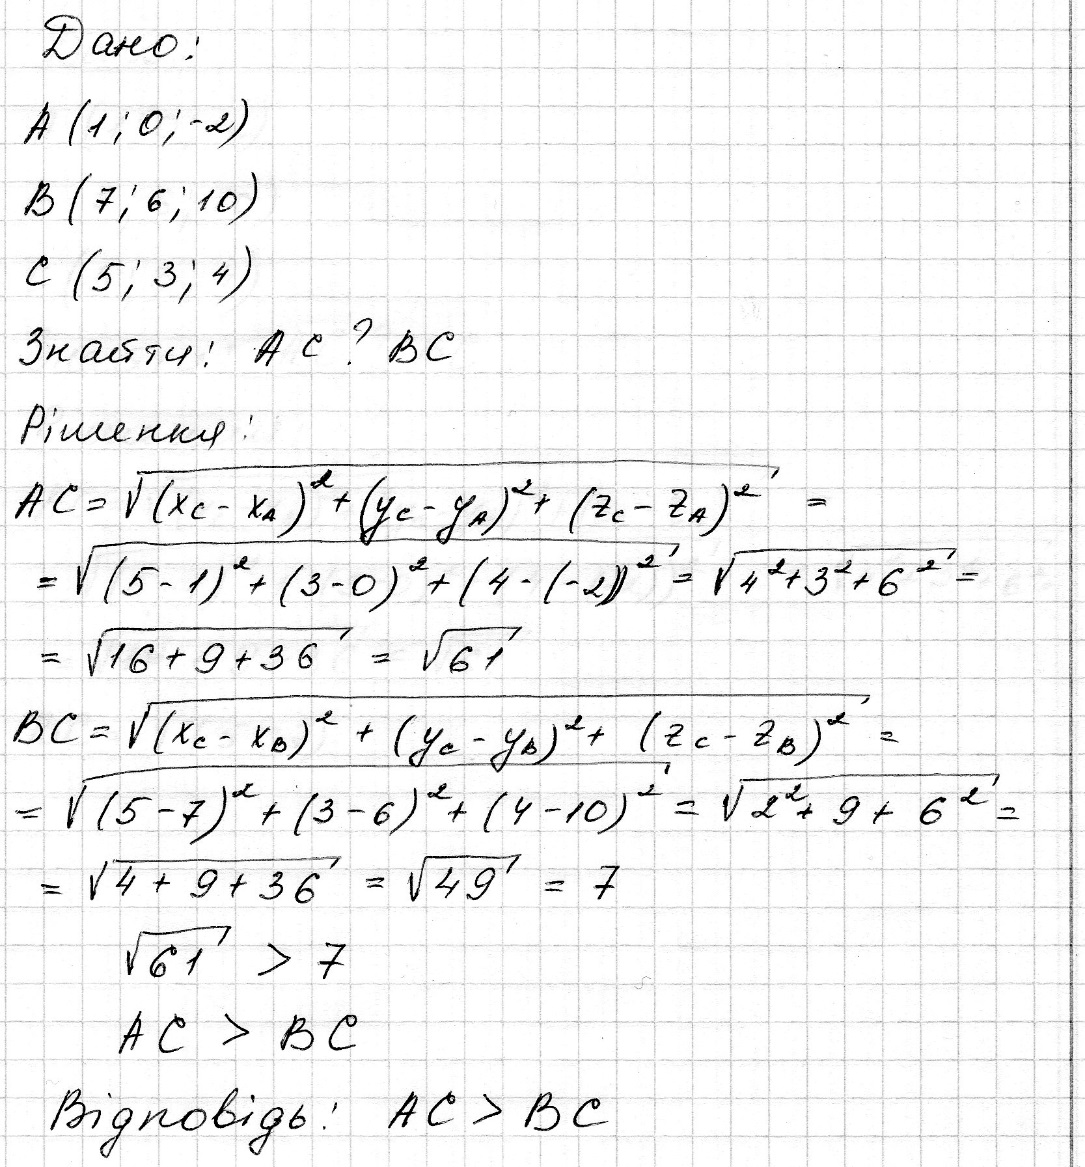 Дано:
A (1; 0; -2)
B (7; 6; 10)
C (5; 3; 4)
Знайти: AC ? BC
Рішення:
AC = √((x_C - x_A)² + (y_C - y_A)² + (z_C - z_A)²) =
= √((5 - 1)² + (3 - 0)² + (4 - (-2))²) = √(4² + 3² + 6²) =
= √(16 + 9 + 36) = √61
BC = √((x_C - x_B)² + (y_C - y_B)² + (z_C - z_B)²) =
= √((5 - 7)² + (3 - 6)² + (4 - 10)²) = √(2² + 9 + 6²) =
= √(4 + 9 + 36) = √49 = 7
√61 > 7
AC > BC
Відповідь: AC > BC